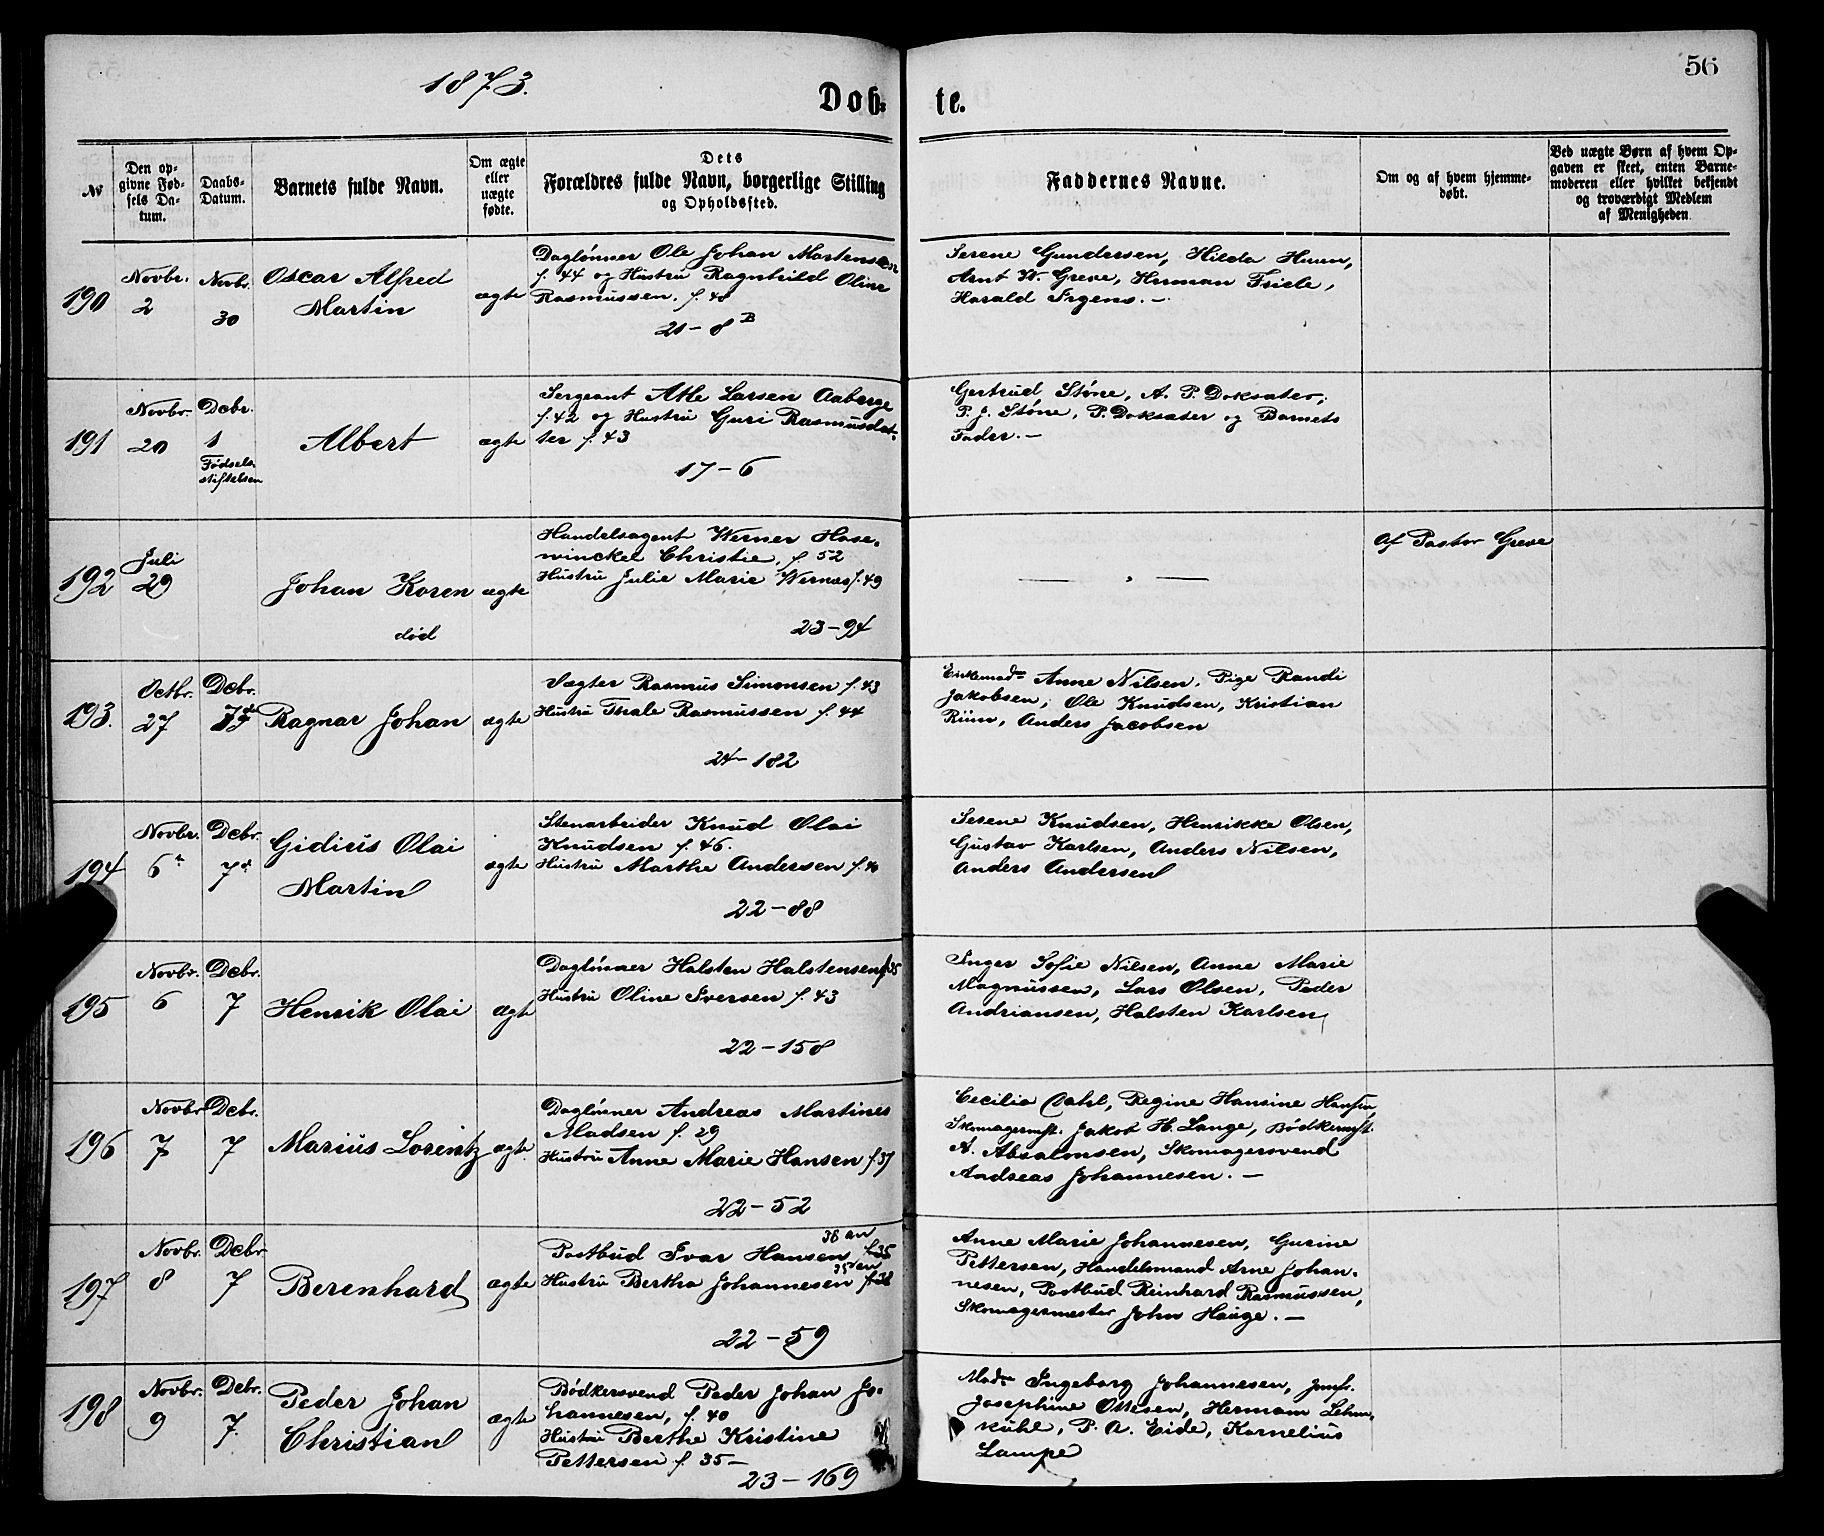 1873.
56
Døb-
te.
№
Den op-
givne Fød-
sels Da-
tum.
Daabs-
Datum.
Barnets fulde Navn.
Om ægte
eller
uægte
fødte.
Dets
Forældres fulde Navn, borgerlige Stilling
og Opholdssted.
Faddernes Navne.
Om og af hvem hjemme-
døbt.
Ved uægte Børn af hvem Op-
gaven er skeet, enten Barne-
moderen eller hvilket bekjendt
og troværdigt Medlem
af Menigheden
190
Novbr.
2
Novbr.
30
Oscar Alfred
Martin
ægte
Daglønner Ole Johan Martensen
f. 44 og Hustru Ragnhild Oline
Rasmussen. f. 48
21-8 B
Serene Gundersen, Hilda Huun,
Arnt W. Greve, Herman Friele,
Harald Irgens. -
191
Novbr.
20
Debr.
1
Fødsels-
stiftelsen
Albert
ægte
Sergeant Atle Larsen Aaberge
f. 42 og Hustru Guri Rasmusdat-
ter f. 43
17-6
Gertrud Støne, A. P. Doksater,
P. J. Støne, P. Doksater og Barnets
Fader. -
192
Juli
29
Johan Koren
død
ægte
Handelsagent Werner Hose-
winckel Christie, f. 52
Hustru Julie Marie Wernøs f. 49
23-94
Af Pastor Greve
193.
Octbr.
27
Debr.
7de
Ragnar Johan
ægte
Vægter Rasmus Simonsen f. 43
Hustru Thale Rasmussen f. 44
24-182
Enkemad. Anne Nilsen. Pige Randi
Jakobsen, Ole Knudsen, Kristian
Riim, Anders Jacobsen
194
Novbr.
6
Debr.
7
Gidius Olai
Martin
ægte
Stenarbeider Knud Olai
Knudsen f. 46.
Hustru Marthe Andersen f. 40
22-88
Serene Knudsen, Henrikke Olsen,
Gustav Karlsen, Anders Nilsen,
Anders Andersen
195
Novbr.
6
Debr.
7
Henrik Olai
Ægte
Daglønner Halsten Halstensen f. 35
Hustru Oline Iversen f. 43
22-158
Inger Sofie Nilsen, Anne Marie
Magnussen, Lars Olsen, Peder
Andriansen, Halsten Karlsen,
196
Novbr
7
Debr.
7
Marius Lorentz
ægte
Daglønner Andreas Martines
Madsen f. 29
Hustru Anne Marie Hansen f. 37
22-52
Cecilia Dahl, Regine Hansine Hansen,
Skomagermst. Jakob H. Lange, Bødkermst.
A. Absalonsen, Skomagersvend
Andreas Johannesen. -
197
Novbr.
8
Debr
7
Berenhard
ægte
38 an
Postbud Ivar Hansen f. 35
35 an
Hustru Bertha Johannesen f. 38
22-59
Anne Marie Johannesen, Gurine
Pettersen, Handelsmand Arne Johan-
nesen, Postbud Reinhard Rasmussen,
Skomagermester John Hauge. -
198
Novbr.
9
Debr.
7.
Peder Johan
Christian
ægte
Bødkersvend Peder Johan Jo-
hannesen, f. 40
Hustru Berthe Kristine
Pettersen f. 35 -
23-169
Mad. Ingeborg Johannesen, Jomfr.
Josephine Ottesen, Hermann Lehm-
kuhl, P. A. Eide, Kornelius
Lampe